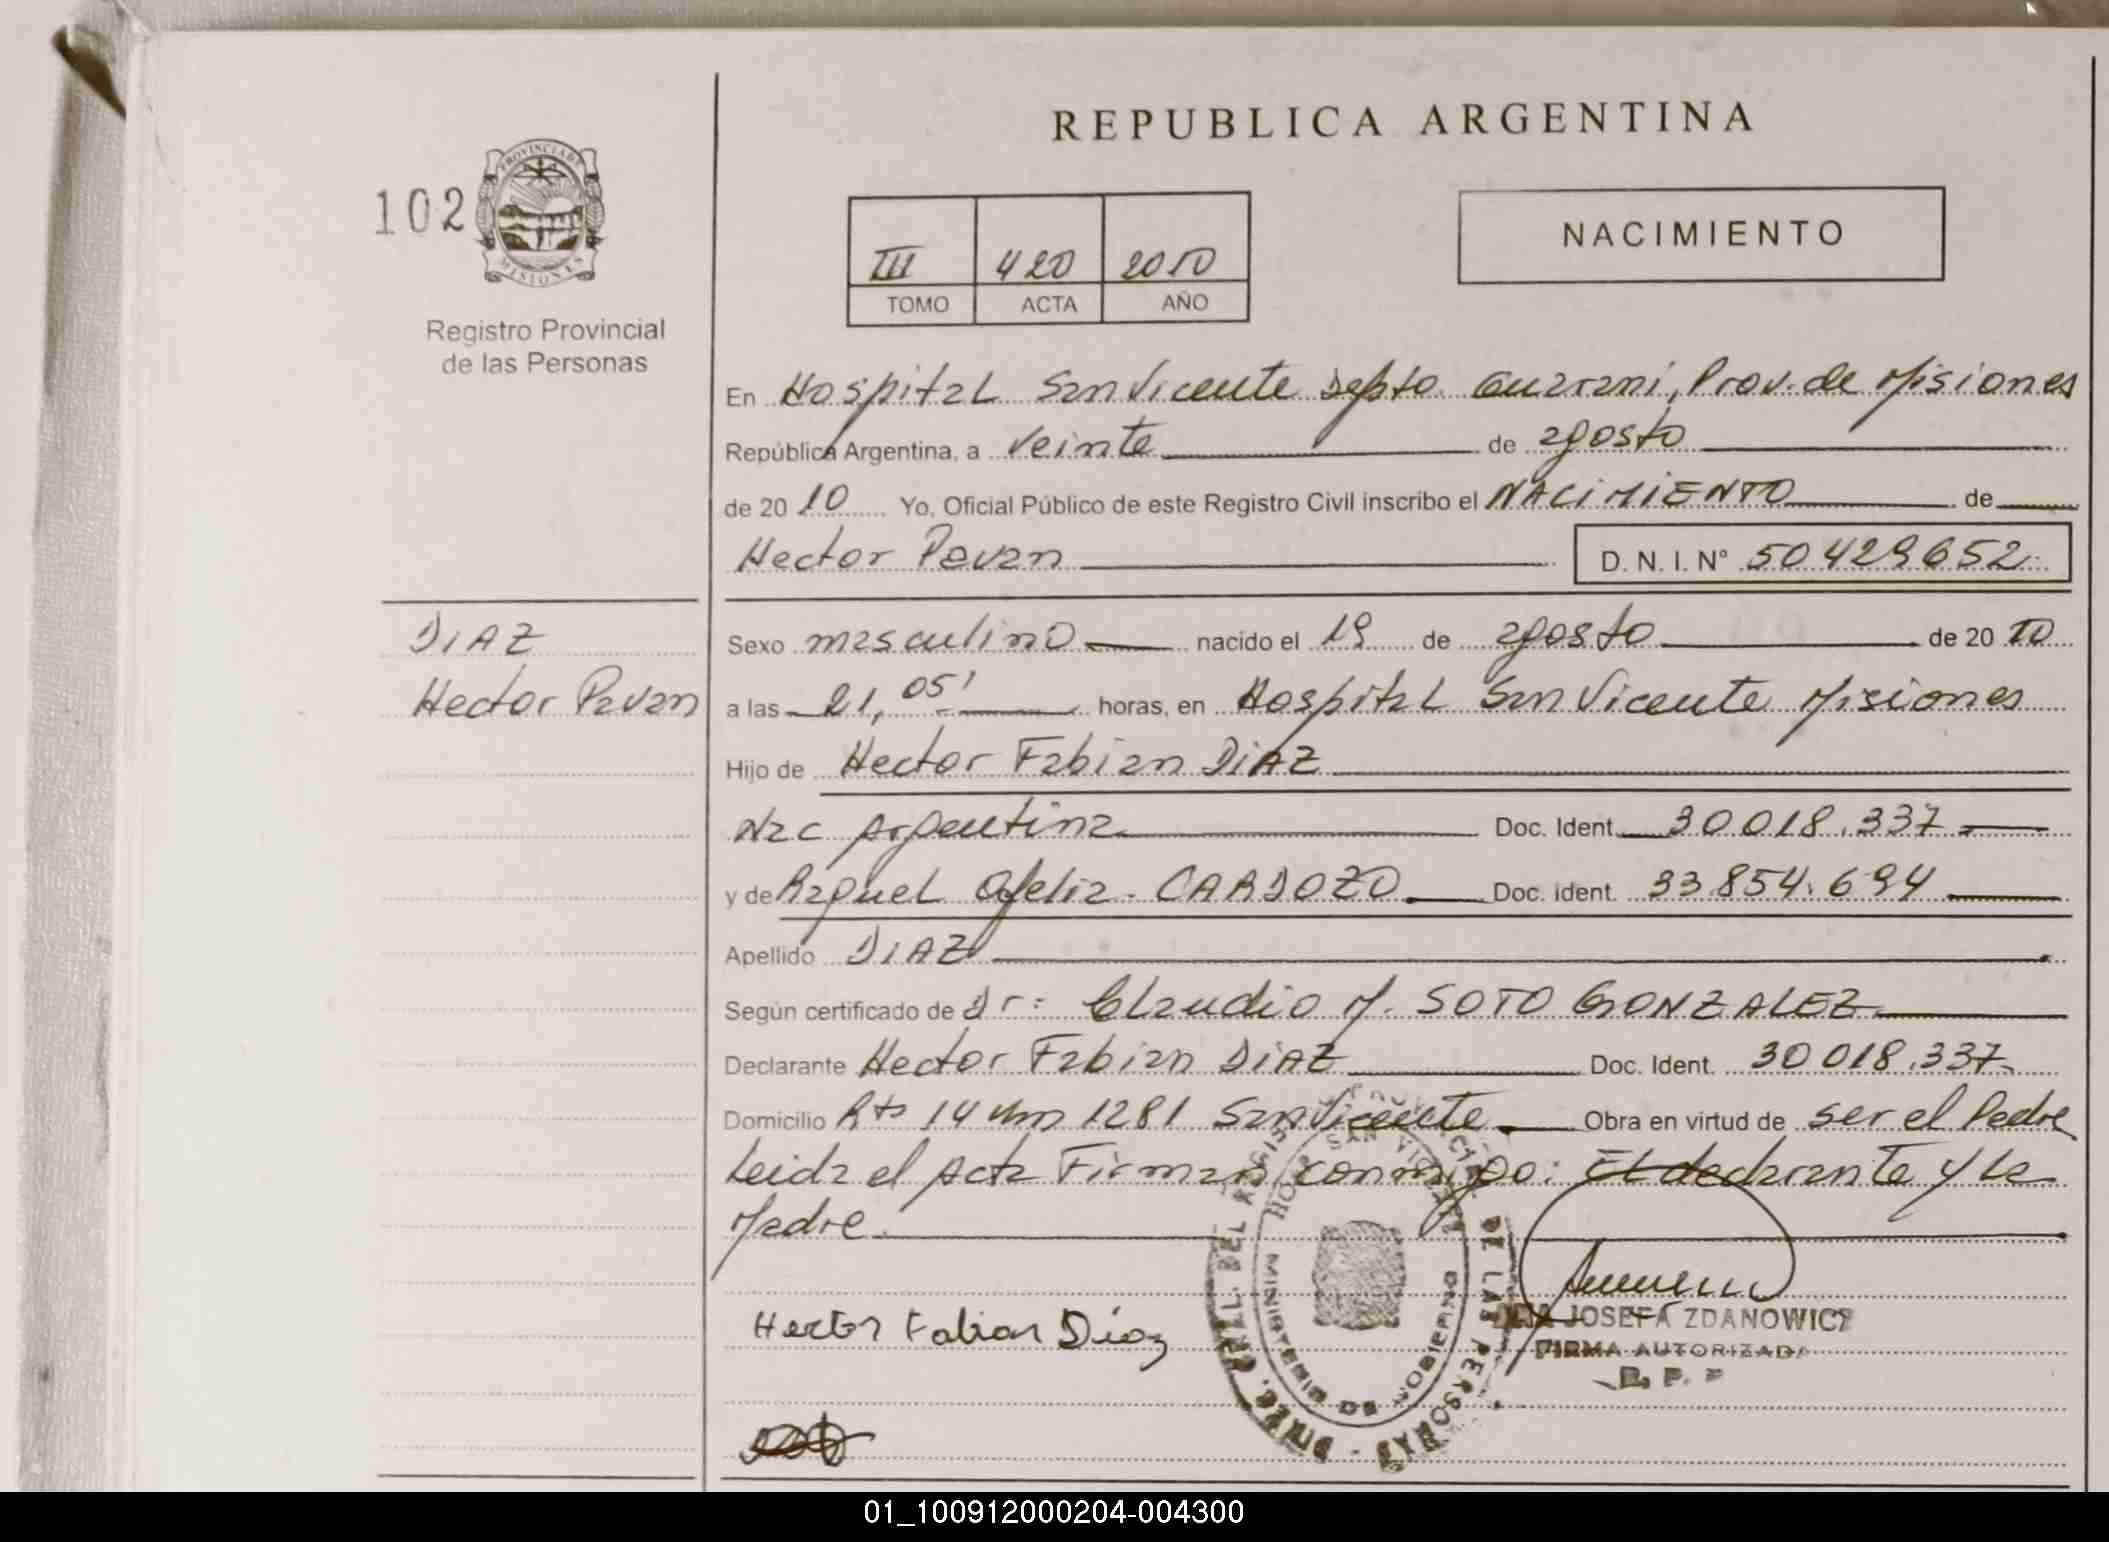 REPUBLICA ARGENTINA
102
PROVINCIA DE
MISIONES
Registro Provincial
de las Personas
III 420 2010
TOMO ACTA AÑO
NACIMIENTO
En Hospital San Vicente Depto. Guarani, Prov. de Misiones
República Argentina, a veinte de agosto
de 20 10 Yo, Oficial Público de este Registro Civil inscribo el NACIMIENTO de
Hector Pavan D. N. I. N° 50429652
DIAZ
Hector Pavan
Sexo masculino nacido el 19 de agosto de 20 10
a las 21,05' horas, en Hospital San Vicente Misiones
Hijo de Hector Fabian DIAZ
Nac Argentina Doc. Ident. 30018.337
y de Raquel Ofelia CARDOZO Doc. ident. 33.854.694
Apellido DIAZ
Según certificado de Dr: Claudio M. SOTO GONZALEZ
Declarante Hector Fabian DIAZ Doc. Ident. 30018.337
Domicilio Rta 14 Km 1281 San Vicente Obra en virtud de ser el Padre
Leida el Acta Firman conmigo: El declarante y la
Madre
Hector Fabian Díaz
HOSP. SAN VICENTE
MINISTERIO DE GOBIERNO
DE LAS PERSONAS
JOSEFA ZDANOWICZ
FIRMA AUTORIZADA
01_100912000204-004300